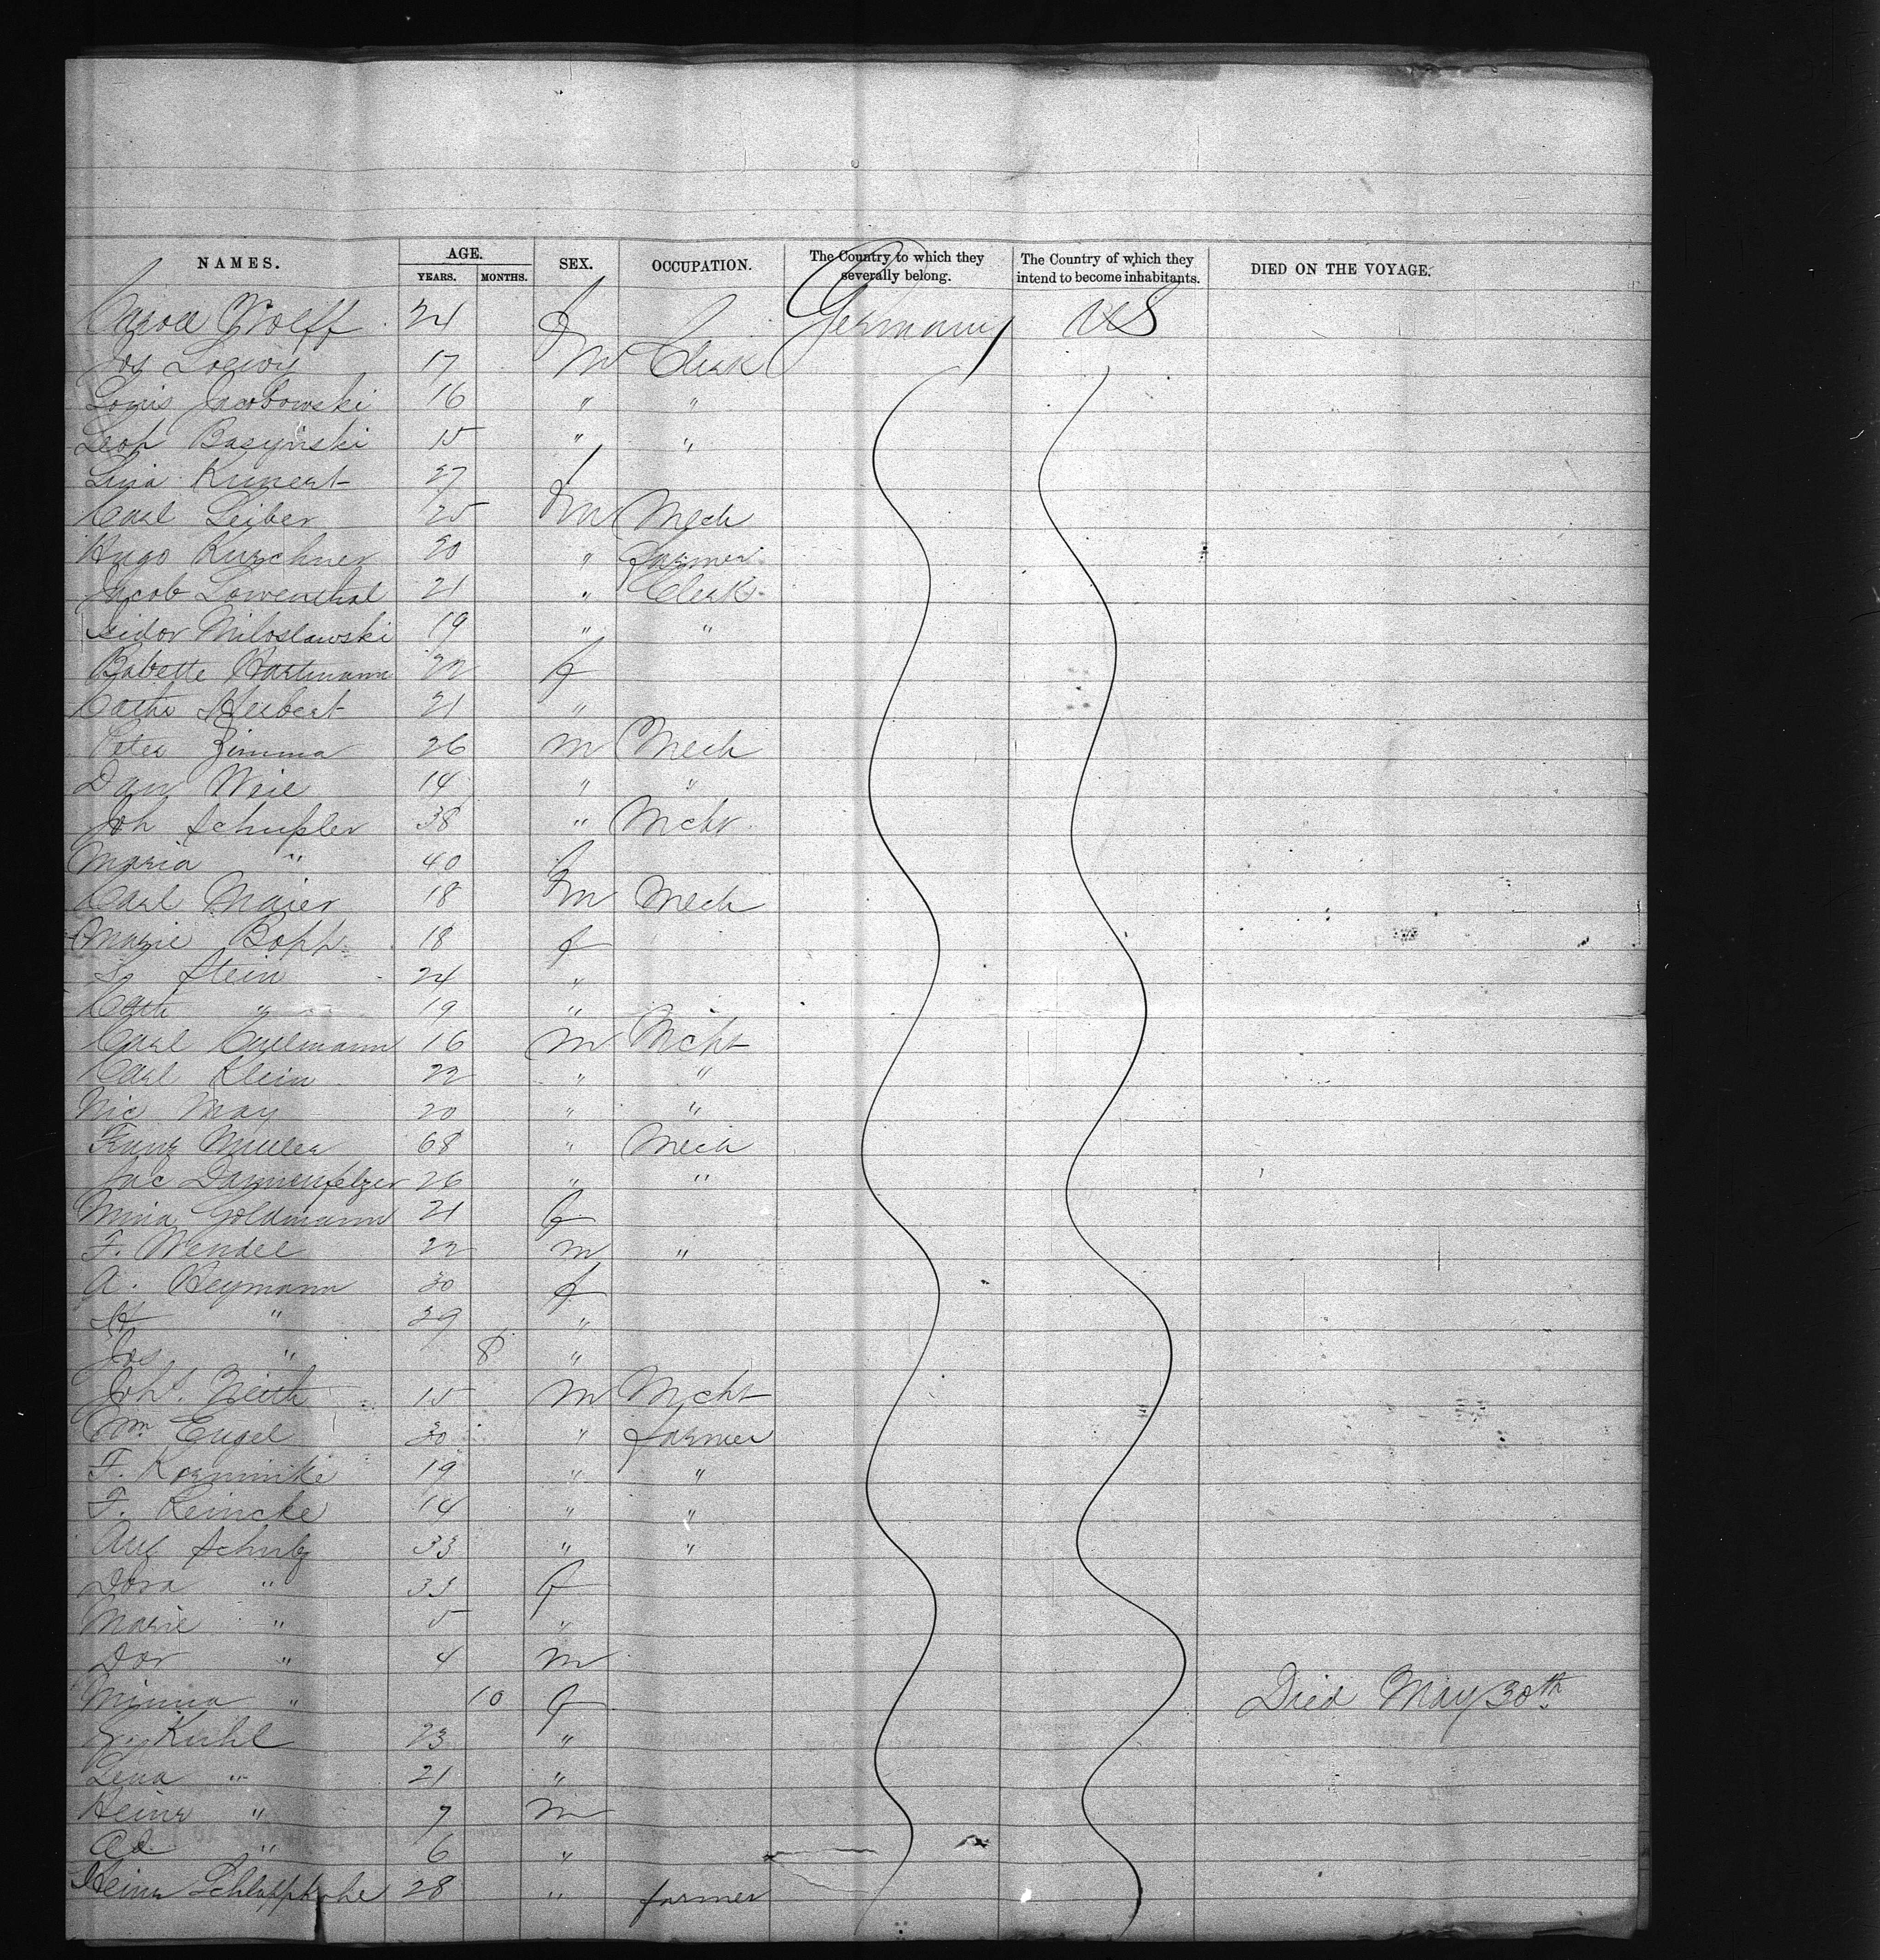 NAMES. AGE. YEARS. MONTHS. SEX. OCCUPATION. The Country to which they severally belong. The Country of which they intend to become inhabitants. DIED ON THE VOYAGE.
Wolff 21 f Germany US
Jos Loewy 17 m Clerk
Louis Jacobowski 16 " "
Leop Basynski 15 " "
Lina Kunert 27 f
Carl Leiber 25 m Mech
Hugo Kurschner 20 " farmer
Jacob Lowenthal 21 " Clerk
Isidor Miloslawski 19 " "
Babette Hartmann 22 f
Cathe Herbert 21 "
Peter Zimma 26 m Mech
Dan Weil 14 " "
Joh Schußler 38 " Mcht
Maria " 40 f
Carl Maier 18 m Mech
Marie Bopp 18 f
So Stein 24 "
Cath " 19 "
Carl Kullmann 16 m Mcht
Carl Klein 22 " "
Nic May 20 " "
Franz Muller 68 " Mech
Jac Dannenfelzer 26 " "
Mina Goldmann 21 f
F. Wendel 22 m "
A. Heymann 30 f
H " 29 "
Jos " 8 "
Joh. Neith 15 m Mcht
Wm Engel 30 " farmer
F. Korminike 19 " "
F. Reincke 14 " "
Aug Schulz 33 " "
Dora " 33 f
Marie " 5 "
Dor " 4 m
Minna " 10 f Died May 30th
Kuhl 23 "
Lena " 21 "
Heinr " 7 m
Ad. " 6 "
Heinr Schlappkohe 28 " farmer